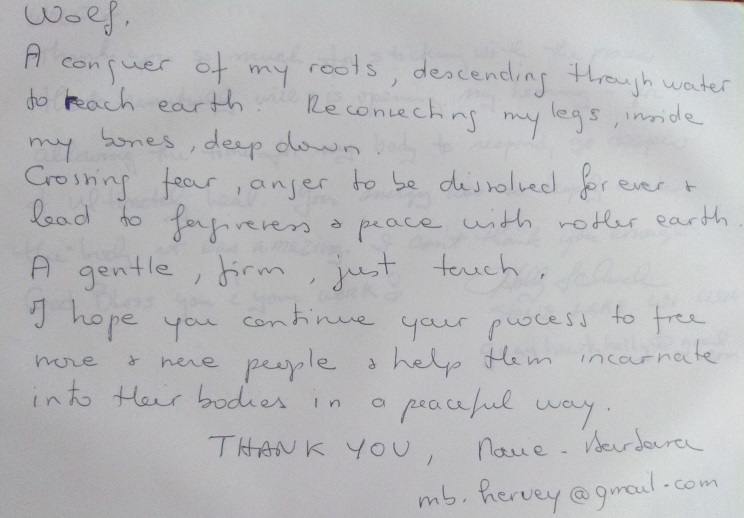 Wolf,
A conquer of my roots, descending through water
to reach earth. Reconnecting my legs, inside
my bones, deep down.
Crossing fear, anger to be dissolved for ever &
lead to forgiveness & peace with mother earth.
A gentle, firm, just touch.
I hope you continue your process to free
more & more people & help them incarnate
into their bodies in a peaceful way.
THANK YOU, Marie-Barbara
mb.hervey@gmail.com